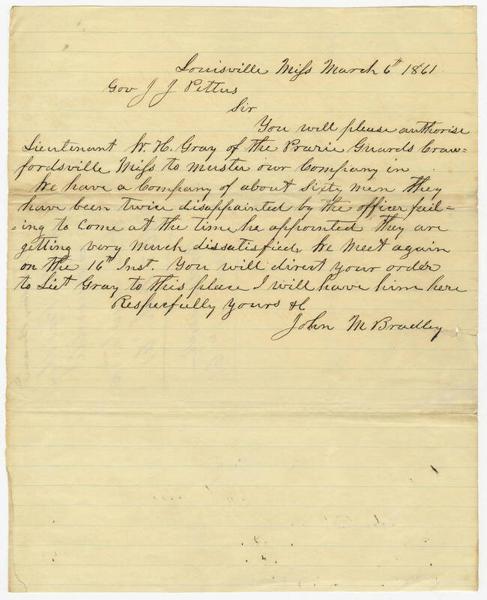 Louisville Miss March 6th 1861
Gov J J Pettus
Sir
You will please authorise
Lieutenant W. H. Gray of the Prarie Guards Craw=
fordsville Miss to muster our Company in
We have a Company of about Sixty men they
have been twice disappainted by the officer fail=
ing to Come at the time he appointed they are
getting very much dissatisfied. We Meet again
on the 16th Inst. You will direct your order
to Liet Gray to this place I will have him here
Respecfully Yours &C
John M Bradley